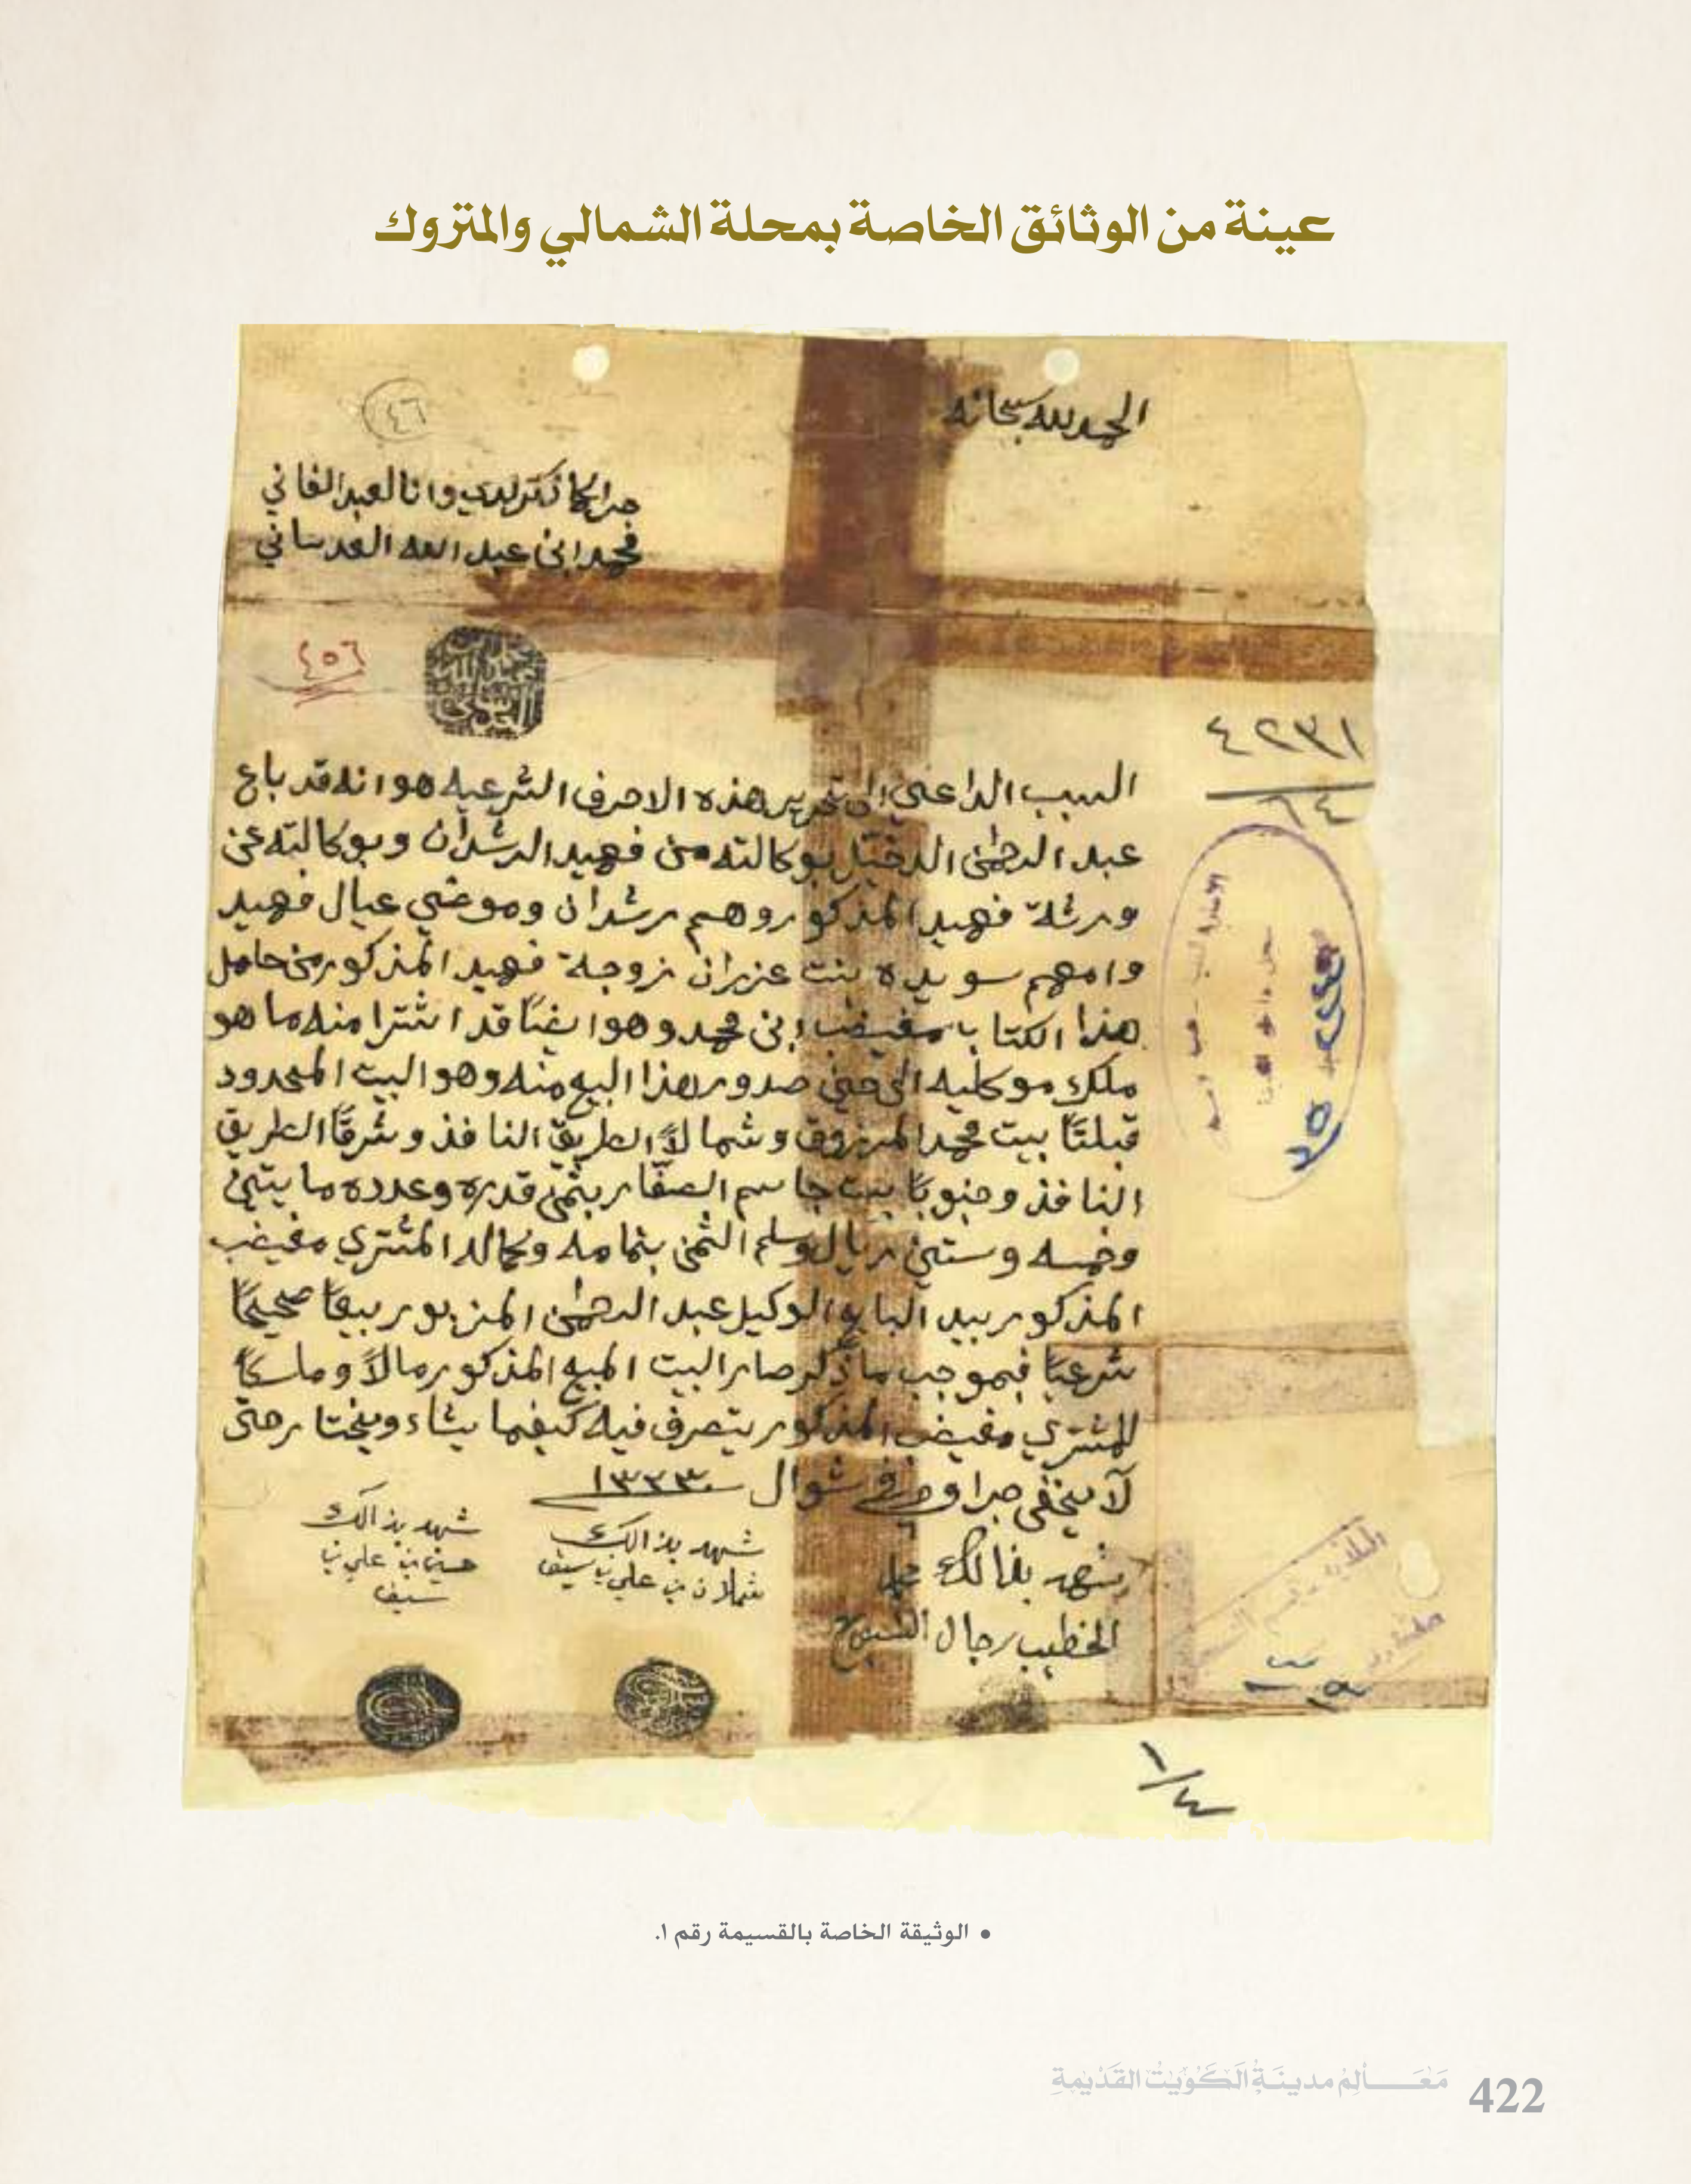 عينة من الوثائق الخاصة بمحلة الشمالي والمتروك
الحمد لله سبحانه
٤٦
جرا كما ذكر لدي وانا العبد الفاني
محمد ابن عبد الله العدساني
٤٥٦
٤٢٣١
٦٤
السبب الداعي الى تحرير هذه الاحرف الشرعيه هو انه قد باع
عبد الرحمن الدخيل بوكالته من فهيد الرشدان وبوكالته عن
ورثة فهيد المذكور وهم رشدان وموضي عيال فهيد
وامهم سويده بنت عزران زوجة فهيد المذكور من حامل
هذا الكتاب مغيضب ابن محمد وهو ايضًا قد اشترا منه ما هو
ملك موكليه الى حين صدور هذا البيع منه وهو البيت المحدود
قبلتًا بيت محمد المرزوق وشمالًا الطريق النافذ وشرقًا الطريق
النافذ وجنوبًا بيت جاسم الصفار بثمن قدره وعدده مايتين
وخمسه وستين ريال وسلم الثمن بتمامه وكماله المشتري مغيضب
المذكور بيد البايع الوكيل عبد الرحمن المزبور بيعًا صحيحًا
شرعيًا فبموجب ما ذكر صار البيت المبيع المذكور مالًا وملكًا
للمشتري مغيضب المذكور يتصرف فيه كيفما يشاء ويختار حتى
لا يخفى جرا وحرر في ٦ شوال سنة ١٣٣٣
شهد بذالك
الخطيب رجال
شهد بذالك
شملان بن علي بن سيف
شهد بذالك
حسين بن علي بن
سيف
١/٤
• الوثيقة الخاصة بالقسيمة رقم ١.
مَعَـالِمُ مدينَةِ الكُوَيْت القَدْيمةِ
422